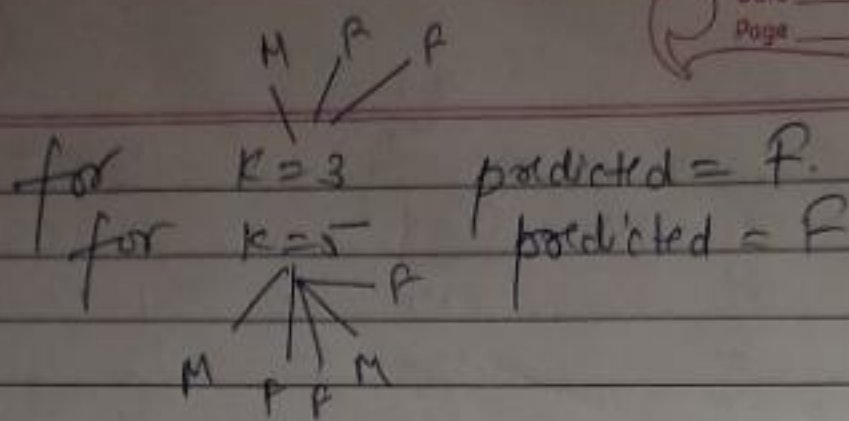 Page
M F F
for K = 3 predicted = F.
for K = 5 predicted = F
F
M F F M